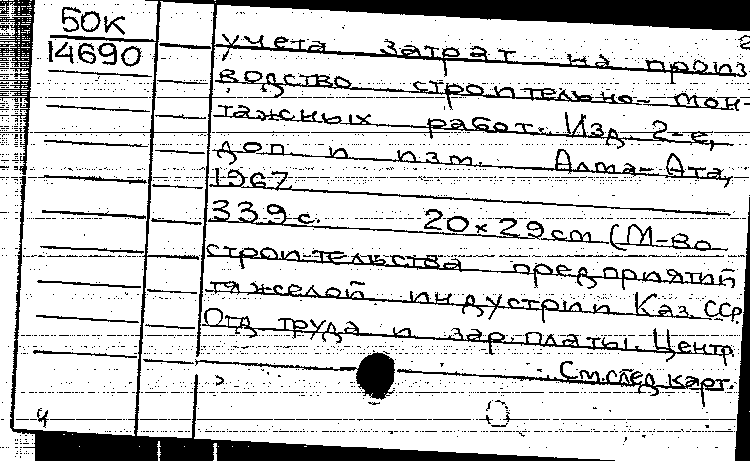 50К
14690
учета затрат на произ
водство строительно-мон-
тажных работ. Изд. 2-е,
доп. и изм. Алма-Ата,
1967
339 с. 20×29 см (М-во
строительства предприятий
тяжелой индустрии Каз. ССР.
Отд. труда и зар. платы. Центр
См. след. карт.
4